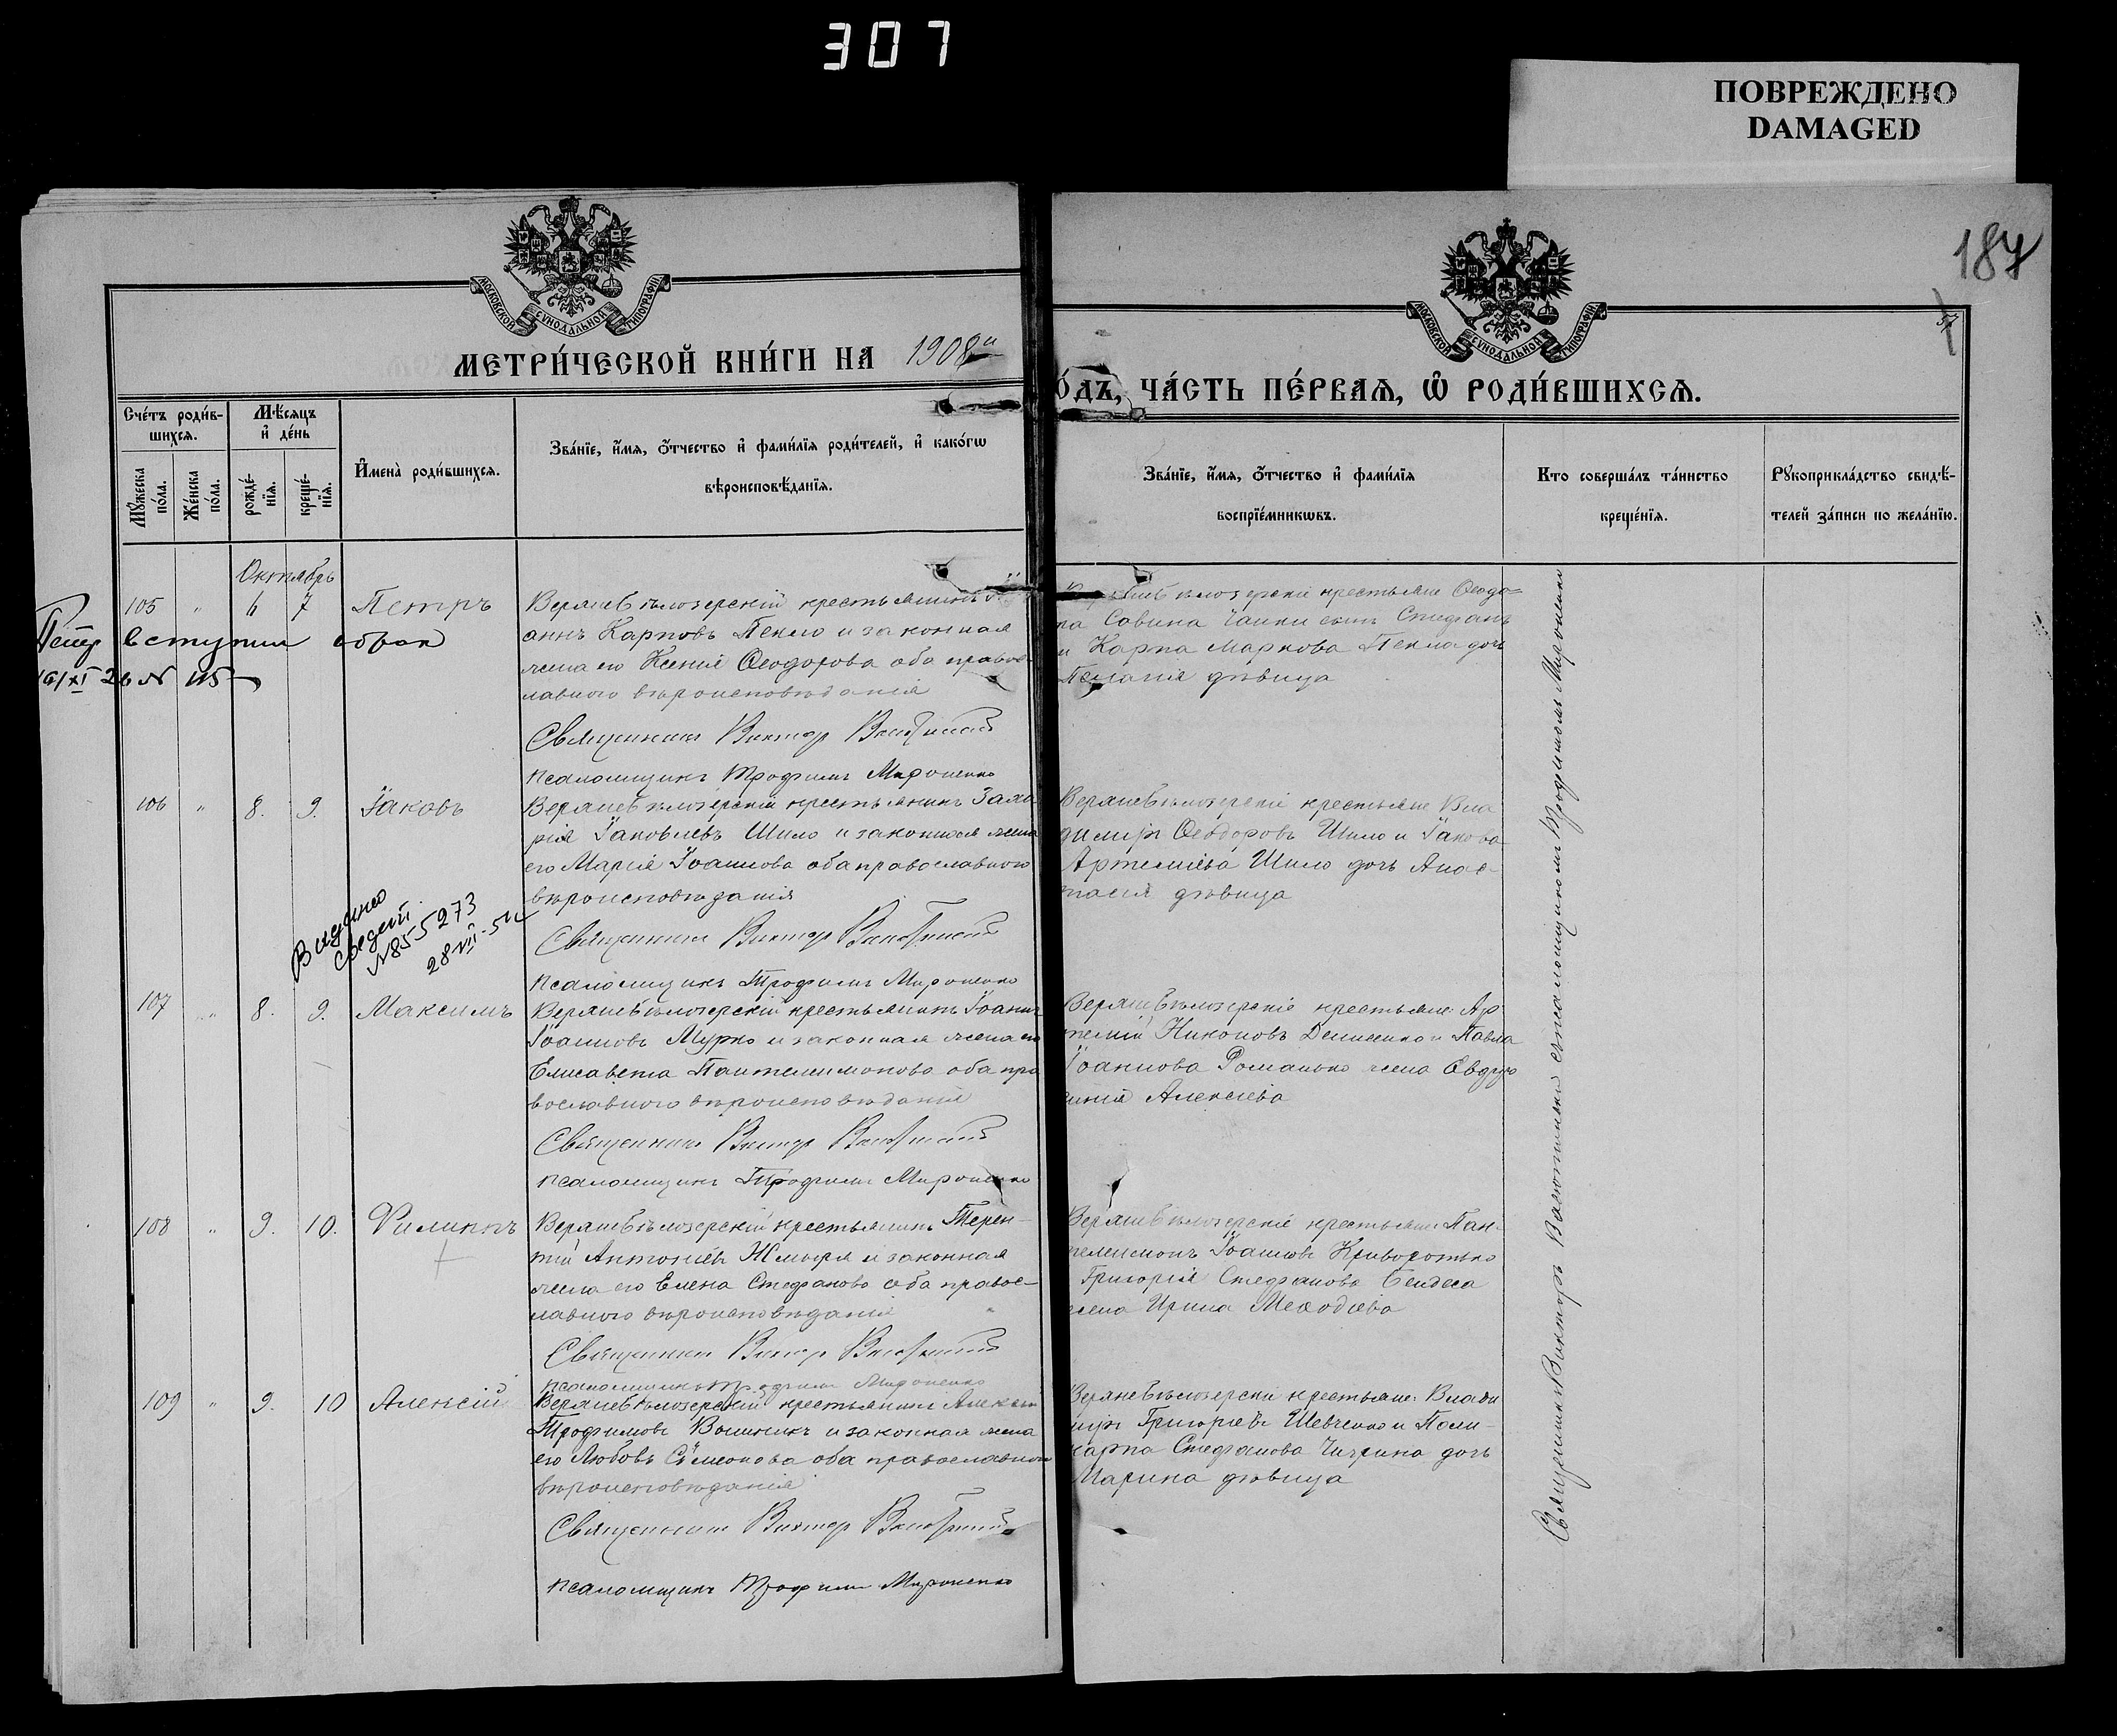 307
ПОВРЕЖДЕНО
DAMAGED
187
57
МОСКОВСКОЙ СѴНОДАЛЬНОЙ ТИПОГРАФІИ
МОСКОВСКОЙ СѴНОДАЛЬНОЙ ТИПОГРАФІИ
МЕТРИ́ЧЕСКОЙ КНИ́ГИ НА 1908й
О́ДЪ, ЧА́СТЬ ПЕ́РВАѦ, Ѿ РОДИ́ВШИХСѦ.
Сче́тъ роди́в-
шихсѧ.
Мꙋ́жеска по́ла.
Же́нска по́ла.
Мѣ́сяцъ и҆ де́нь
рожде́-
нїѧ.
креще́-
нїѧ.
И҆мена̀ роди́вшихсѧ.
Зва́нїе, и҆́мѧ, о҆́тчество и҆ фами́лїѧ роди́телей, и҆ како́гѡ
вѣроисповѣ́данїѧ.
Зва́нїе, и҆́мѧ, о҆́тчество и҆ фами́лїѧ
воспрїе́мникѡвъ.
Кто соверша́лъ та́инство
креще́нїѧ.
Рꙋкоприкла́дство свидѣ́-
телей за́писи по жела́нїю.
Октябрь
105 " 6 7 Петръ
Верхнебѣлозерскій крестьянинъ
аннъ Карповъ Пекло и законная
жена его Ксенія Ѳеодорова оба правос-
лавного вѣроисповѣданія
Священникъ Виктор
Псаломщикъ Трофимъ Мироненко
крестьяне Ѳеодо=
та Савина Чайки сынъ Стефанъ
и Карпа Маркова Пекла дочь
Пелагія дѣвица
Петр вступил в брак
26 N 115
106 " 8. 9. Іаковъ
Верхнебѣлозерскій крестьянинъ Заха
рія Іаковлевъ Шило и законная жена
его Марія Іоаннова оба православного
вѣроисповѣданія
Священникъ Виктор
Псаломщикъ Трофимъ Мироненко
Верхнебѣлозерскіе крестьяне Вла
димиръ Ѳеодоровъ Шило и Іакова
Артеміева Шило дочь Анас-
тасія дѣвица
Видано
N855273
28 VII-51
107 " 8. 9. Максимъ
Верхнебѣлозерскій крестьянинъ Іоаннъ
Іоанновъ Мурко и законная жена его
Елисавета Пантелеимонова оба пра
вославного вѣроисповѣданія
Священникъ Виктор
Псаломщикъ Трофимъ Мироненко
Верхнебѣлозерскіе крестьяне: Ар
темій Никоновъ Денисенко и Павла
Іоаннова Романько жена Евдро
синія Алексіева
108 " 9. 10. Филиппъ
Верхнебѣлозерскій крестьянинъ Терен-
тій Антоніевъ Жмыря и законная
жена его Елена Стефанова оба правос-
лавного вѣроисповѣданія
Священникъ Виктор
Псаломщикъ Трофимъ Мироненко
Верхнебѣлозерскіе крестьяне: Пан-
телеимонъ Іоанновъ Криворотько
Григорія Стефанова Бендеса
жена Ирина Меѳодіева
109 " 9. 10 Алексій
Верхнебѣлозерскій крестьянинъ Алексій
Трофимовъ Войникъ и законная жена
его Любовь Сѵмеонова оба православного
вѣроисповѣданія
Священникъ Виктор
Псаломщикъ Трофимъ Мироненко
Верхнебѣлозерскіе крестьяне: Влади
миръ Григорьевъ Шевченко и Поли-
карпа Стефанова Чигрина дочь
Марина дѣвица
Священникъ Викторъ съ псаломщикомъ Трофимомъ Мироненко